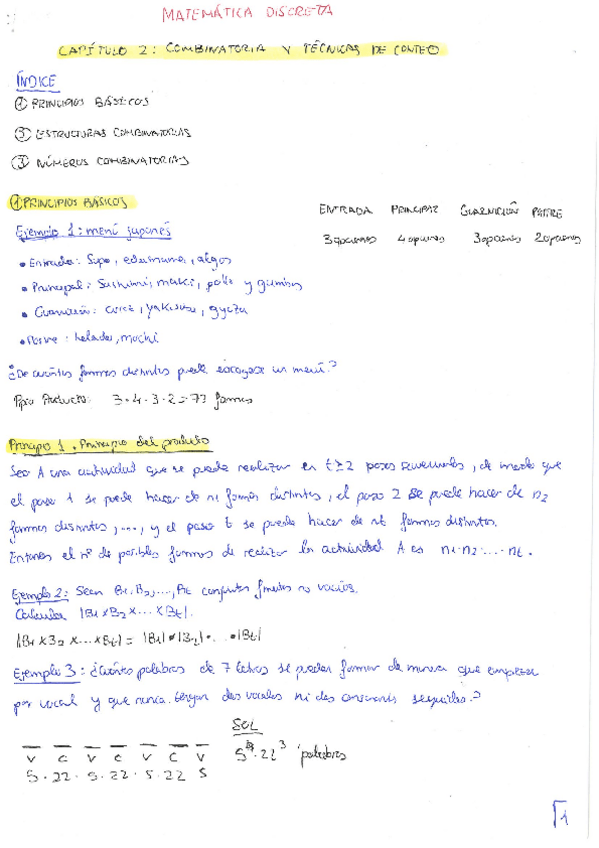 MATEMÁTICA DISCRETA
CAPÍTULO 2: COMBINATORIA Y TÉCNICAS DE CONTEO
ÍNDICE
① PRINCIPIOS BÁSICOS
② ESTRUCTURAS COMBINATORIAS
③ NÚMEROS COMBINATORIOS
① PRINCIPIOS BÁSICOS
ENTRADA PRINCIPAL GUARNICIÓN POSTRE
3 opciones 4 opciones 3 opciones 2 opciones
Ejemplo 1: menú japonés
• Entrada: Sopa, edamame, algas
• Principal: Sashimi, maki, pollo y gambas
• Guarnición: arroz, yakisoba, gyoza
• Postre: helado, mochi
¿De cuántas formas distintas puede escogerse un menú?
Ppio Producto: 3·4·3·2=72 formas
Principio 1. Principio del producto
Sea A una actividad que se puede realizar en t≥2 pasos sucesivos, de modo que
el paso 1 se puede hacer de n1 formas distintas, el paso 2 se puede hacer de n2
formas distintas, ..., y el paso t se puede hacer de nt formas distintas.
Entonces el nº de posibles formas de realizar la actividad A es n1·n2·...·nt.
Ejemplo 2: Sean B1, B2, ..., Bt conjuntos finitos no vacíos.
Calcular |B1×B2×...×Bt|.
|B1×B2×...×Bt| = |B1|·|B2|·...·|Bt|
Ejemplo 3: ¿Cuántas palabras de 7 letras se pueden formar de manera que empiecen
por vocal y que nunca tengan dos vocales ni dos consonantes seguidas?
SOL
5⁴·22³ palabras
V C V C V C V
5 · 22 · 5 · 22 · 5 · 22 5
1